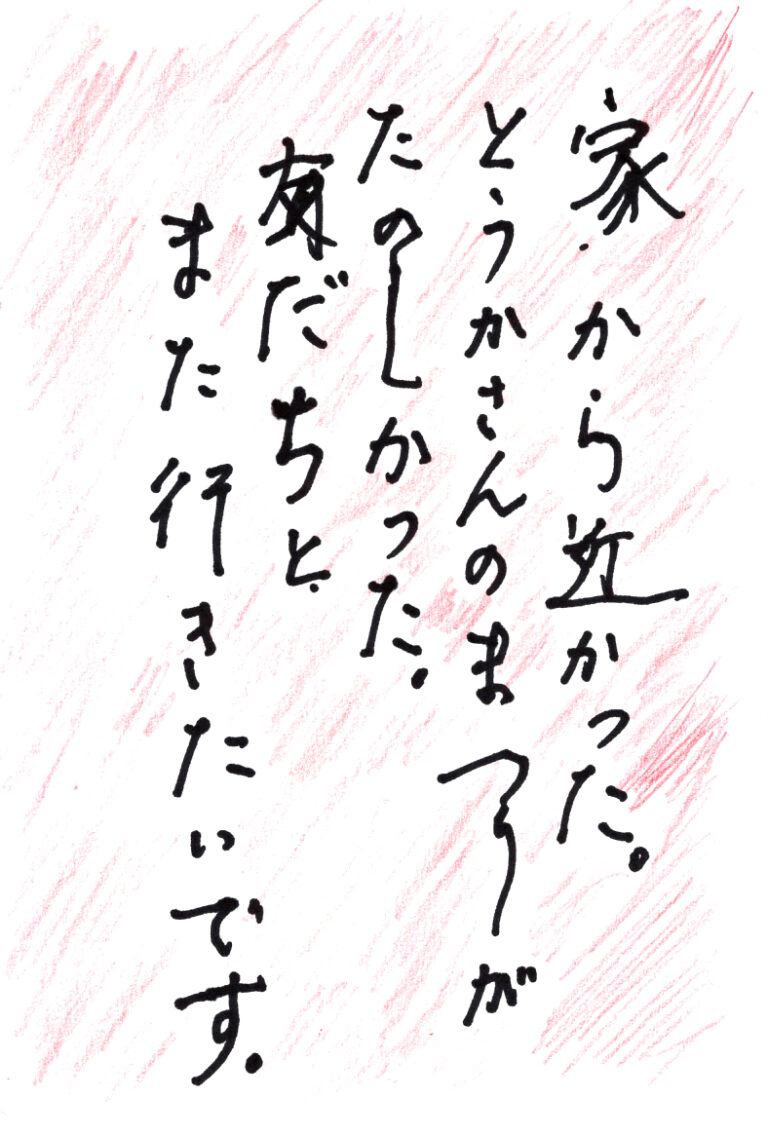 家から近かった。
とうかさんのまつりが
たのしかった。
友だちと
また行きたいです。